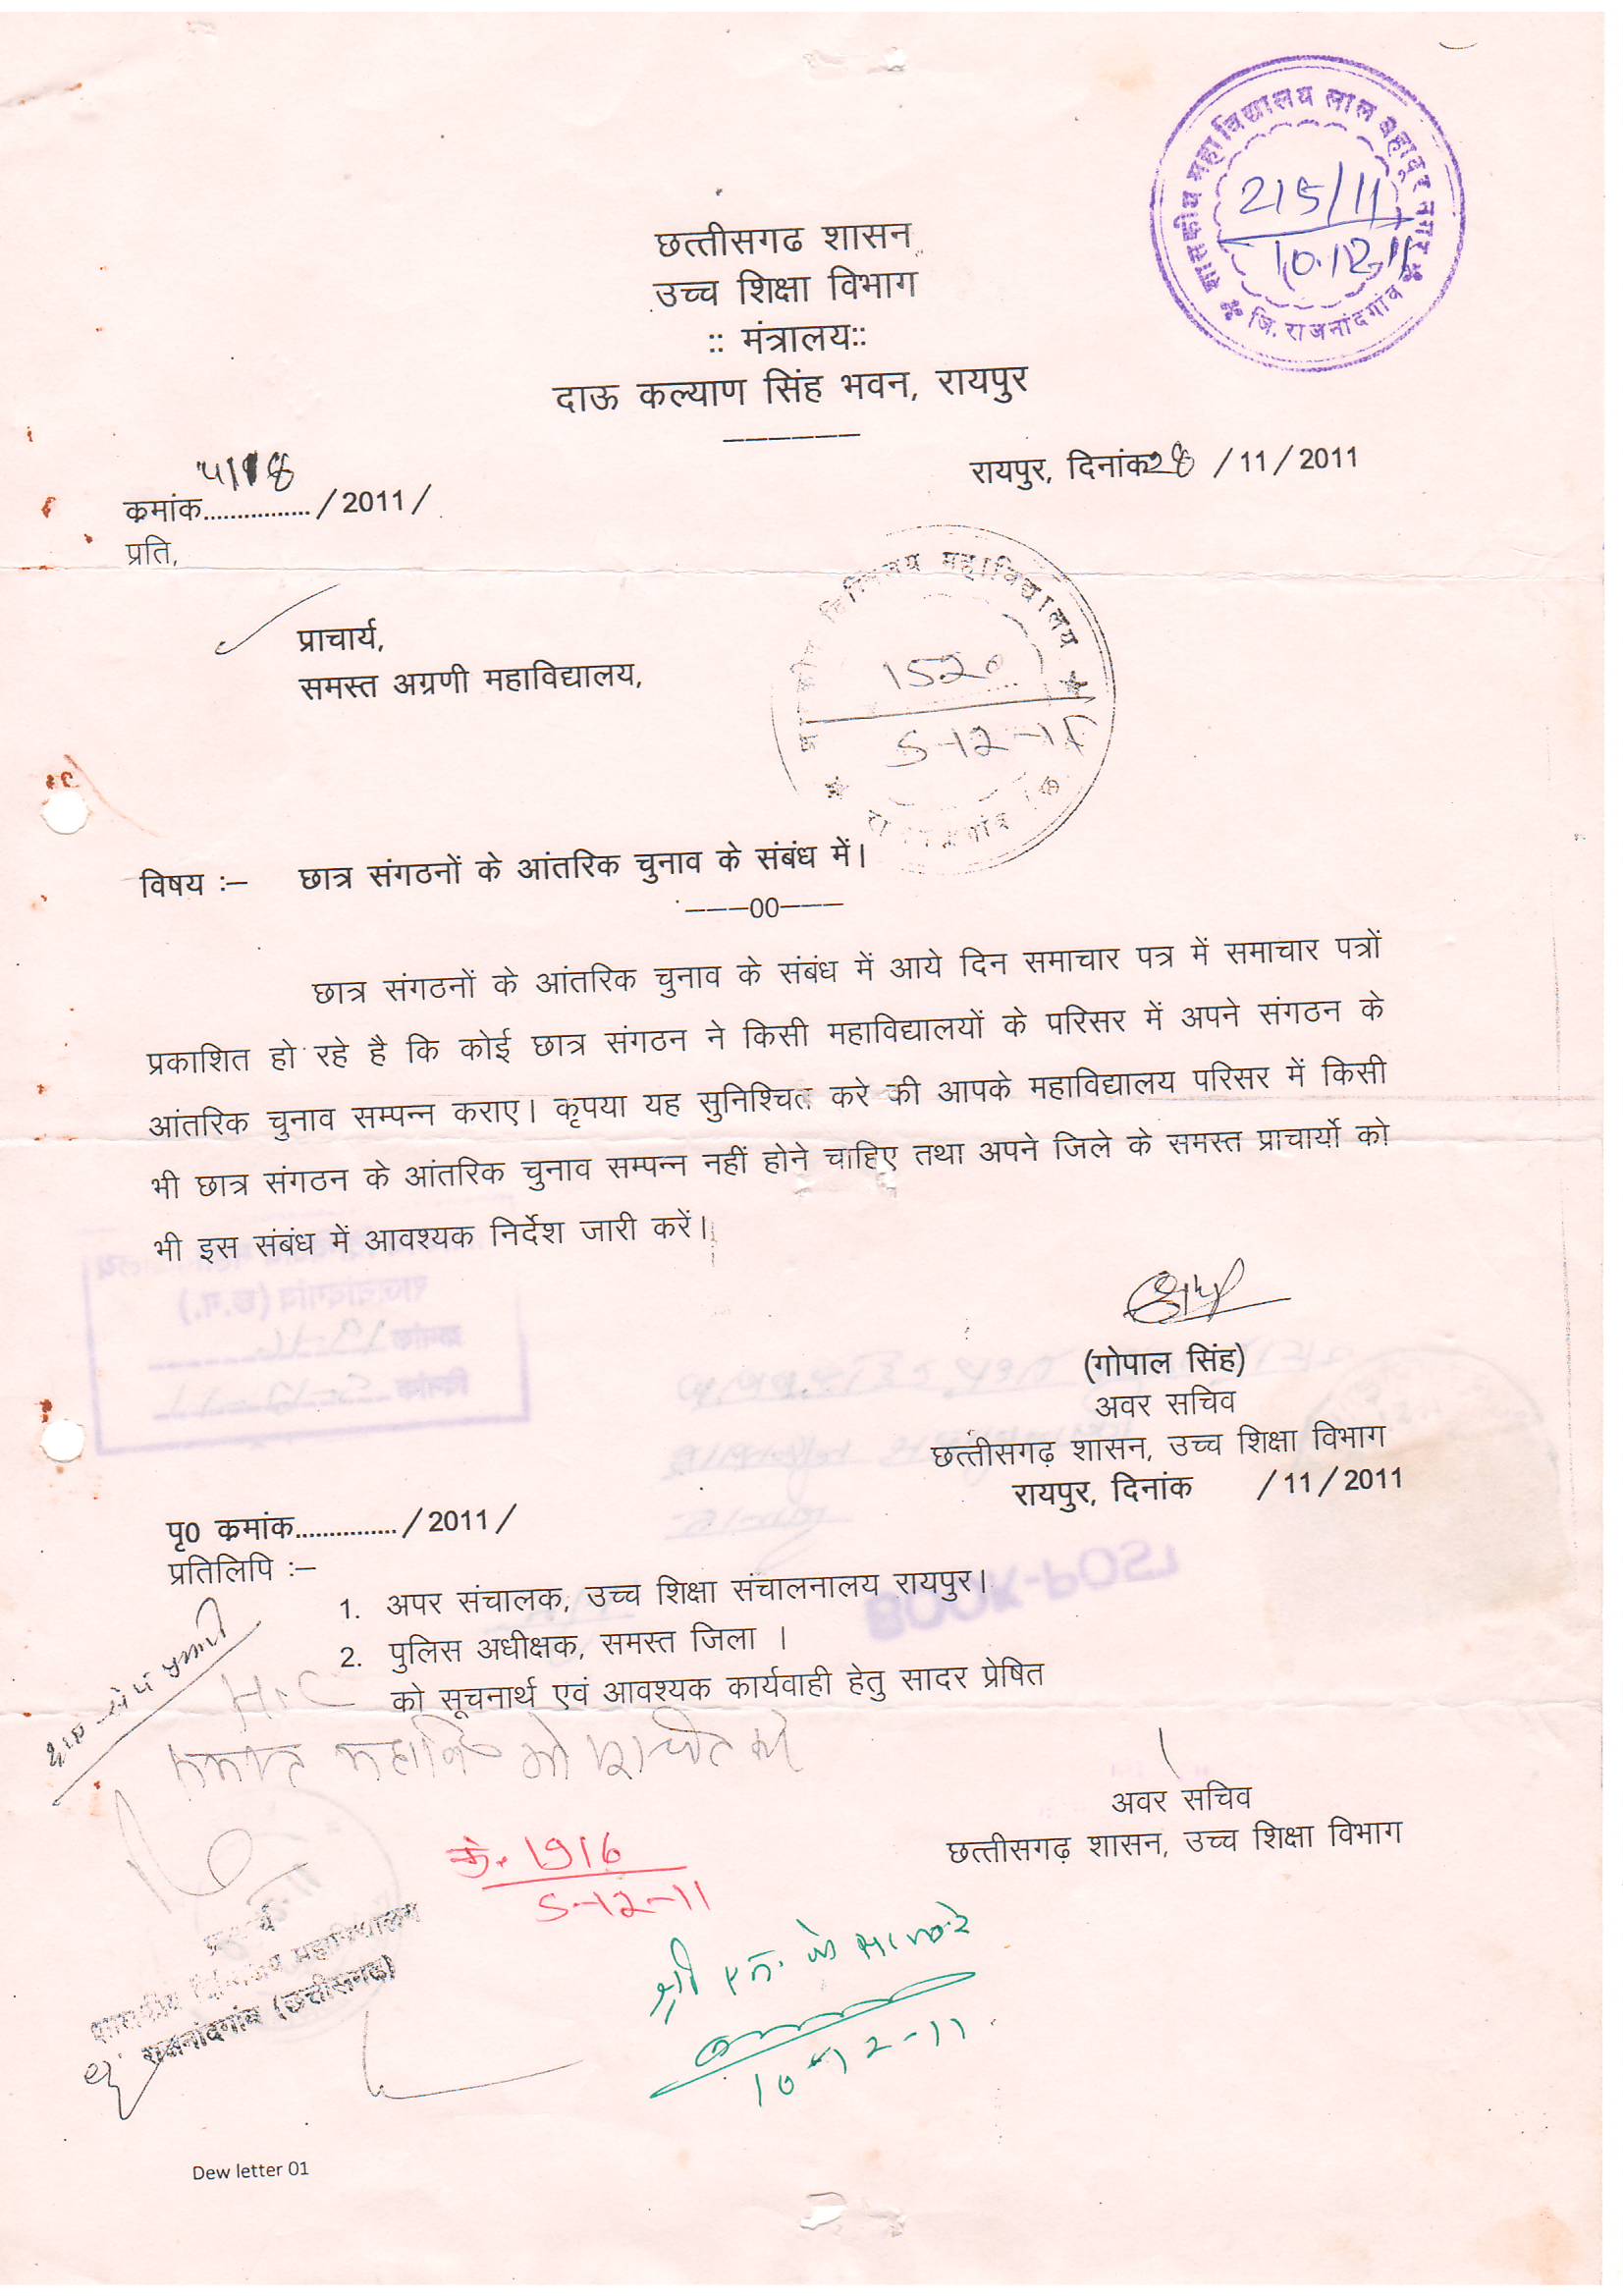 शासकीय महाविद्यालय लाल बहादुर नगर
जि. राजनांदगांव
215/11
10.12.11
छत्तीसगढ शासन
उच्च शिक्षा विभाग
:: मंत्रालय::
दाऊ कल्याण सिंह भवन, रायपुर
रायपुर, दिनांक 28 /11/2011
क्रमांक................/2011/
प्रति,
प्राचार्य,
समस्त अग्रणी महाविद्यालय,
महाविद्यालय
1520
5-12-11
विषय :– छात्र संगठनों के आंतरिक चुनाव के संबंध में।
–––00–––
छात्र संगठनों के आंतरिक चुनाव के संबंध में आये दिन समाचार पत्र में समाचार पत्रों
प्रकाशित हो रहे है कि कोई छात्र संगठन ने किसी महाविद्यालयों के परिसर में अपने संगठन के
आंतरिक चुनाव सम्पन्न कराए। कृपया यह सुनिश्चित करे की आपके महाविद्यालय परिसर में किसी
भी छात्र संगठन के आंतरिक चुनाव सम्पन्न नहीं होने चाहिए तथा अपने जिले के समस्त प्राचार्यो को
भी इस संबंध में आवश्यक निर्देश जारी करें।
(गोपाल सिंह)
अवर सचिव
छत्तीसगढ़ शासन, उच्च शिक्षा विभाग
रायपुर, दिनांक /11/2011
पृ0 क्रमांक...............​/2011/
प्रतिलिपि :–
1. अपर संचालक, उच्च शिक्षा संचालनालय रायपुर।
2. पुलिस अधीक्षक, समस्त जिला ।
को सूचनार्थ एवं आवश्यक कार्यवाही हेतु सादर प्रेषित
अवर सचिव
छत्तीसगढ़ शासन, उच्च शिक्षा विभाग
क्रे. 1916
5-12-11
शासकीय दिग्विजय महाविद्यालय
राजनांदगांव (छत्तीसगढ़)
श्री एन. के
10-12-11
Dew letter 01